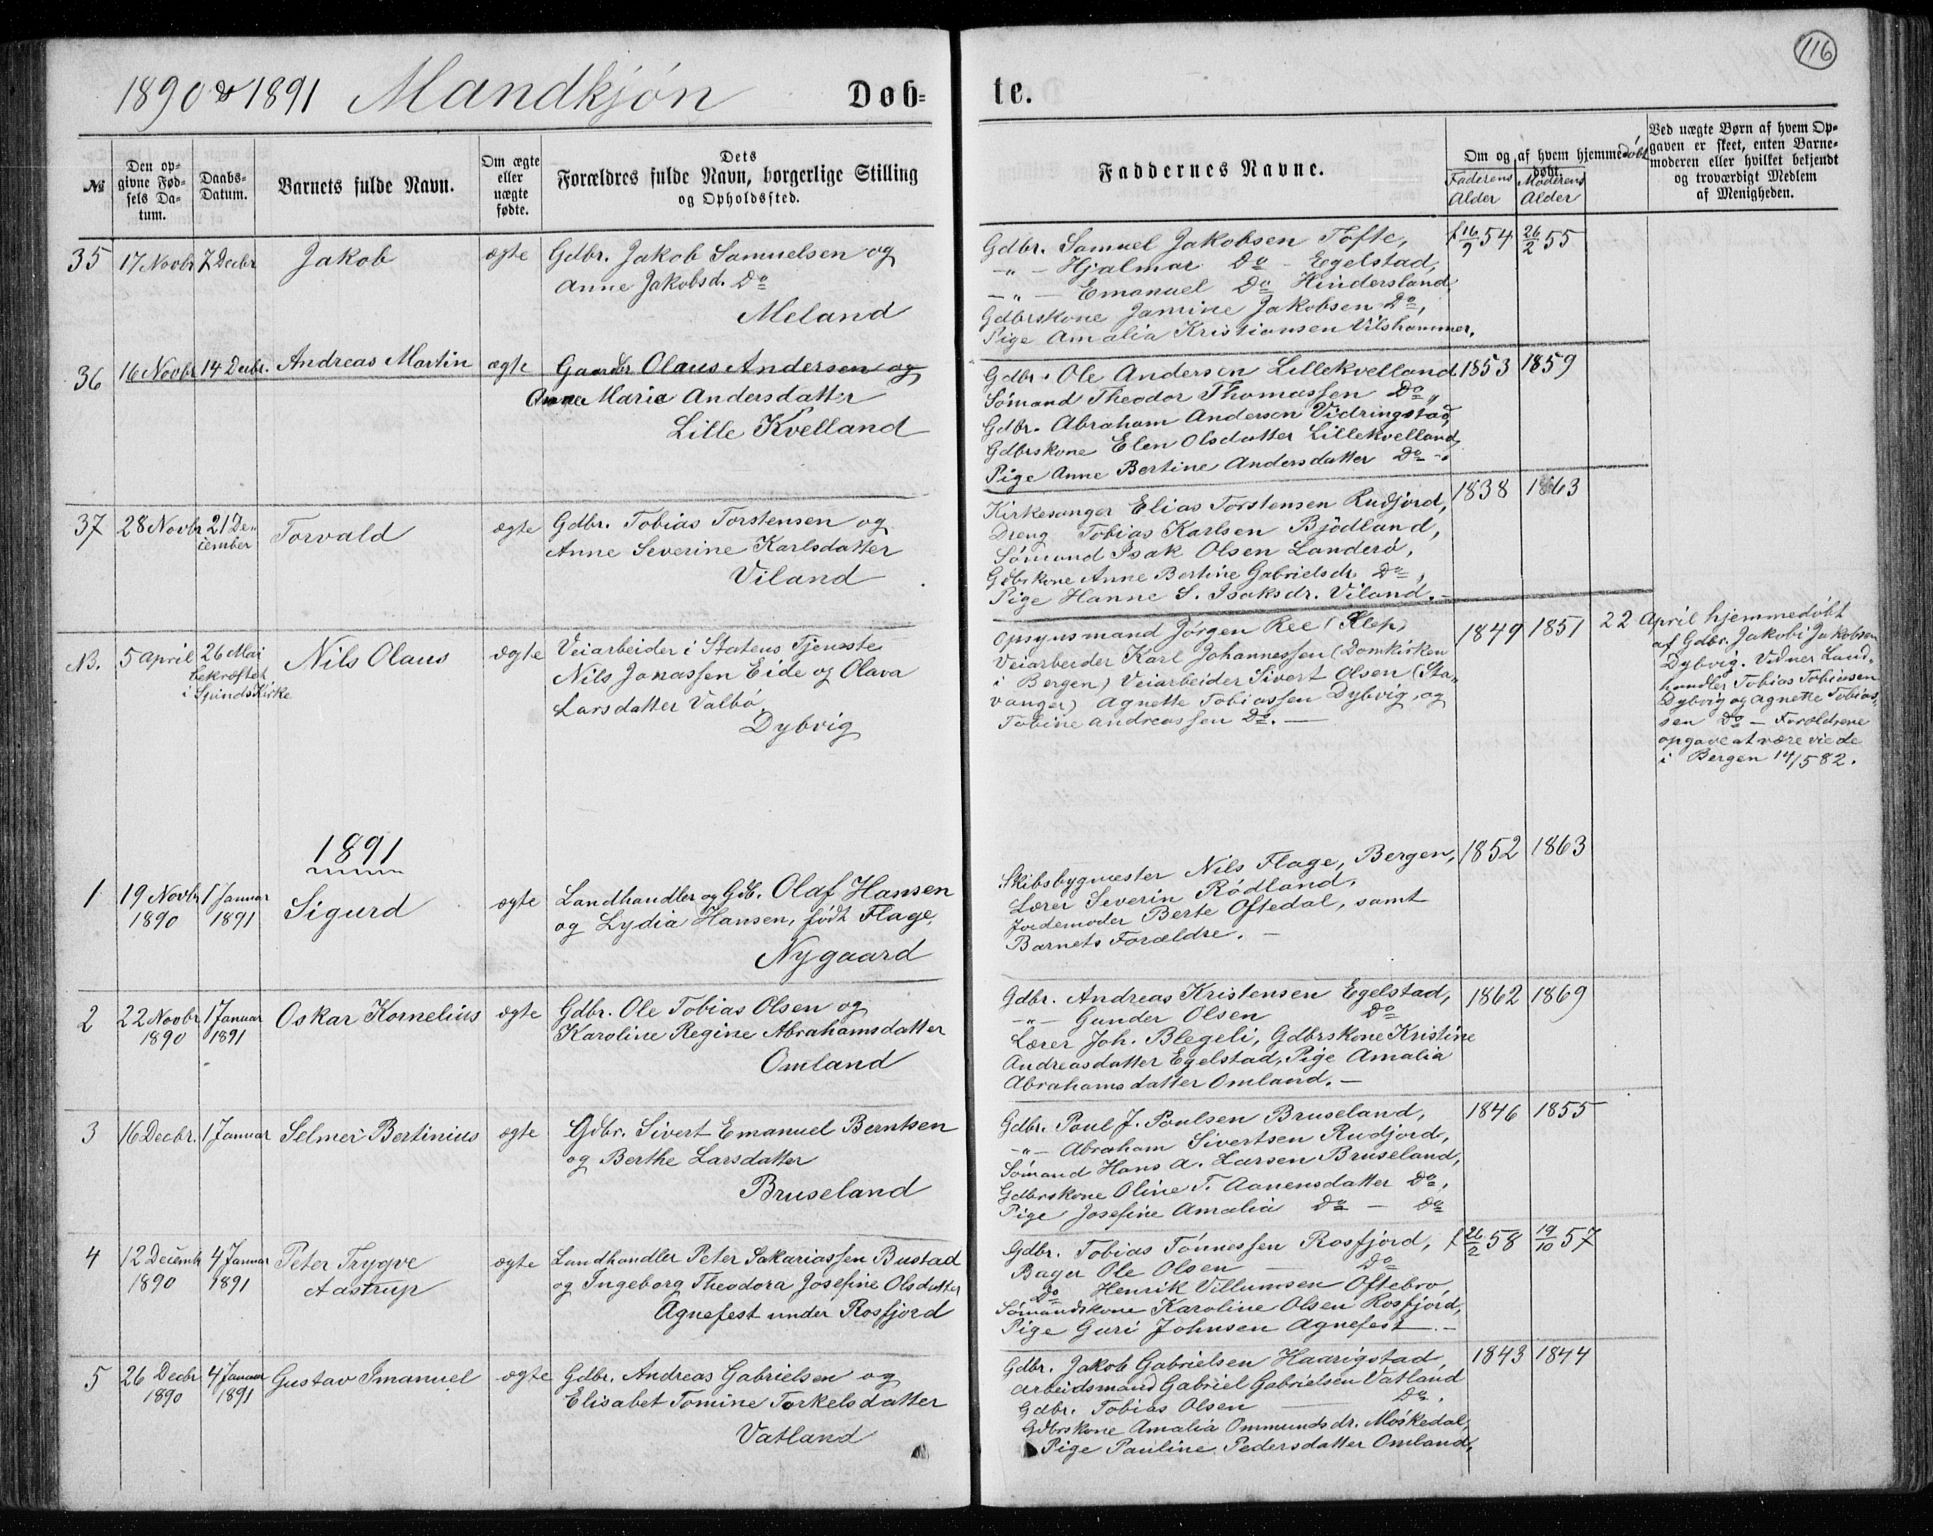 116
1890 & 1891 Mandkjøn Døbte.
№
Den opgivne Fødsels Datum.
Daabs-Datum.
Barnets fulde Navn.
Om ægte eller uægte fødte.
Dets Forældres fulde Navn, borgerlige Stilling og Opholdssted.
Faddernes Navne.
Om og af hvem hjemmedøbt
døbt.
Faderens Alder
Moderens Alder
Ved uægte Børn af hvem Opgaven er skeet, enten Barnemoderen eller hvilket bekjendt og troværdigt Medlem af Menigheden.
35 17 Novbr 7 Decbr Jakob ægte Gdbr. Jakob Samuelsen og
Anne Jakobsd. Do
Meland
Gdbr. Samuel Jakobsen Tofte, f 16/9 54 26/2 55
-"- Hjalmar Do - Egelstad,
-"- Emanuel Do Hindersland,
Gdbrskone Janine Jakobsen Do,
Pige Amalia Kristiansen Ulshammer.
36 16 Novbr 14 Decbr. Andreas Martin ægte Gaardbr Olaus Andersen og
Anna Marie Andersdatter
Lille Kvelland
Gdbr. Ole Andersen Lillekvelland 1853 1859
Sømand Theodor Thomassen Do,
Gdbr. Abraham Andersen Vidringstad,
Gdbrskone Elen Olsdatter Lillekvelland,
Pige Anne Bertine Andersdatter Do -.
37 28 Novbr 21 December Torvald ægte Gdbr. Tobias Torstensen og
Anne Severine Karlsdatter
Viland
Kirkesanger Elias Torstensen Rudjord, 1838 1863
Dreng Tobias Karlsen Bjødland,
Sømand Isak Olsen Landerø,
Gdbrskone Anne Bertine Gabrielsdr. Do,
Pige Hanne S. Isaksdr. Viland. -
NB. 5 April 26 Mai bekræftet i Spinds Kirke Nils Olaus ægte Veiarbeider i Statens Tjeneste
Nils Jonassen Eide og Olava
Larsdatter Valbø,
Dybvig
Opsynsmand Jørgen Ree (Klep) 1849 1851
Veiarbeider Karl Johannessen (Domkirken
i Bergen) Veiarbeider Sivert Olsen (Sta-
vanger) Agnette Tobiassen Dybvig og
Tobine Andreassen Do. -
22 April hjemmedøbt
af Gdbr. Jakob Jakobsen
Dybvig. Vidner Land-
handler Tobias Tobiassen
Dybvig og Agnette Tobias-
sen Do - Forældrene
opgave at være viede
i Bergen 14/5 82.
1891
1 19 Novbr 1890 1 Januar 1891 Sigurd ægte Landhandler og Gdb. Olaf Hansen
og Lydia Hansen, født Flage,
Nygaard
Skibsbygmester Nils Flage, Bergen, 1852 1863
Lærer Severin Rødland,
Jordemoder Berte Oftedal, samt
Barnets Forældre. -
2 22 Novbr 1890 1 Januar 1891 Oskar Kornelius ægte Gdbr. Ole Tobias Olsen og
Karoline Regine Abrahamsdatter
Omland
Gdbr. Andreas Kristensen Egelstad, 1862 1869
-"- Gunder Olsen Do
Lærer Joh. Blegeli, Gdbrskone Kristine
Andreasdatter Egelstad, Pige Amalia
Abrahamsdatter Omland. -
3 16 Decbr. 1 Januar Selmer Bertinius ægte Gdbr. Sivert Emanuel Berntsen
og Berthe Larsdatter
Bruseland
Gdbr. Poul J. Poulsen Bruseland, 1846 1855
-"- Abraham Sivertsen Rudjord,
Sømand Hans A. Larsen Bruseland,
Gdbrskone Oline T. Aanensdatter Do,
Pige Josefine Amalia Do - Do
4 12 Decemb 1890 4 Januar 1891 Peter Trygve Aastrup ægte Landhandler Peter Sakariassen Bustad
og Ingeborg Theodora Josefine Olsdatter
Agnefest under Rosfjord
Gdbr. Tobias Tønnessen Rosfjord, f 26/2 58 19/10 57
Bager Ole Olsen Do
Do Henrik Villumsen Oftebro,
Sømandskone Karoline Olsen Rosfjord,
Pige Guri Johnsen Agnefest. -
5 26 Decbr 1890 4 Januar 1891 Gustav Imanuel ægte Gdbr. Andreas Gabrielsen og
Elisabet Tomine Torkelsdatter
Vatland
Gdbr. Jakob Gabrielsen Haarigstad, 1843 1844
Arbeidsmand Gabriel Gabrielsen Vatland
Gdbr. Tobias Olsen Do.
Gdbrskone Amalia Ommundsdr. Møskedal,
Pige Pauline Pedersdatter Omland.